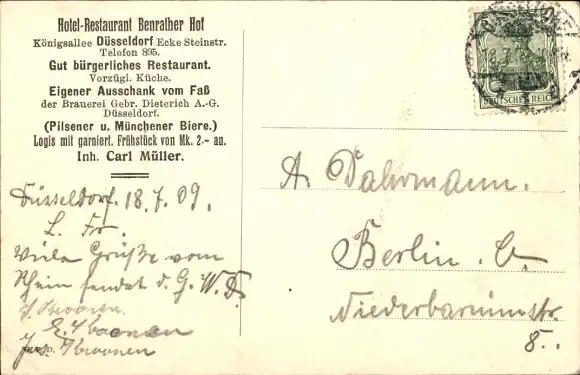 Hotel-Restaurant Benrather Hof
Königsallee Düsseldorf Ecke Steinstr.
Telefon 895.
Gut bürgerliches Restaurant.
Vorzügl. Küche.
Eigener Ausschank vom Faß
der Brauerei Gebr. Dieterich A.-G.
Düsseldorf.
(Pilsener u. Münchener Biere.)
Logis mit garniert. Frühstück von Mk. 2.- an.
Inh. Carl Müller.
DEUTSCHES REICH
Düsseldorf. 18.7.09.
L. Fr.
Viele Grüße vom
Rhein sendet d. G. W. D.
A. Dahrmann.
Berlin. O.
Niederbarnimstr.
8.